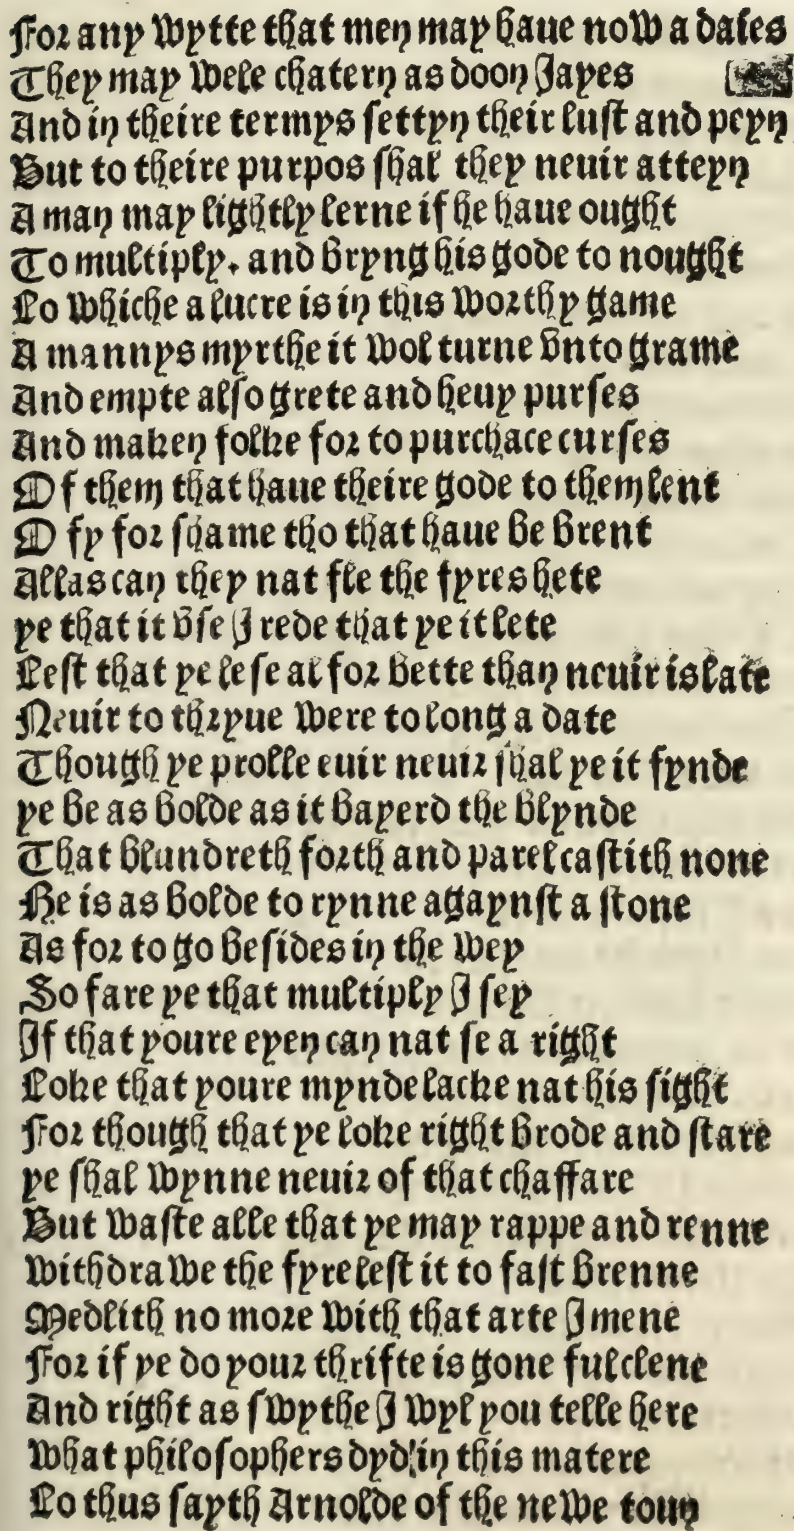 For any wytte that men may haue now a daies
They may wele chatern as doon Iayes
And in theire termys settyn their lust and peyn
But to theire purpos shal they neuir atteyn
A man may lightly lerne if he haue ought
To multiply. and bryng his gode to nought
Lo whiche a lucre is in this worthy game
A mannys myrthe it wol turne vnto grame
And empte also grete and heuy purses
And maken folke for to purchace curses
Of them that haue theire gode to them lent
O fy for shame tho that haue be brent
Allas can they nat fle the fyres hete
ye that it vse I rede that ye it lete
Lest that ye lese al for bette than neuir is late
Neuir to thryue were to long a date
Though ye prolle euir neuir shal ye it fynde
ye be as bolde as it bayerd the blynde
That blundreth forth and parel castith none
He is as bolde to rynne agaynst a stone
As for to go besides in the wey
So fare ye that multiply I sey
If that youre eyen can nat se a right
Loke that youre mynde lacke nat his sight
For though that ye loke right brode and stare
ye shal wynne neuir of that chaffare
But waste alle that ye may rappe and renne
withdrawe the fyre lest it to fast brenne
Medlith no more with that arte I mene
For if ye do your thrifte is gone ful clene
And right as swythe I wyl you telle here
what philosophers dyd in this matere
Lo thus sayth Arnolde of the newe toun